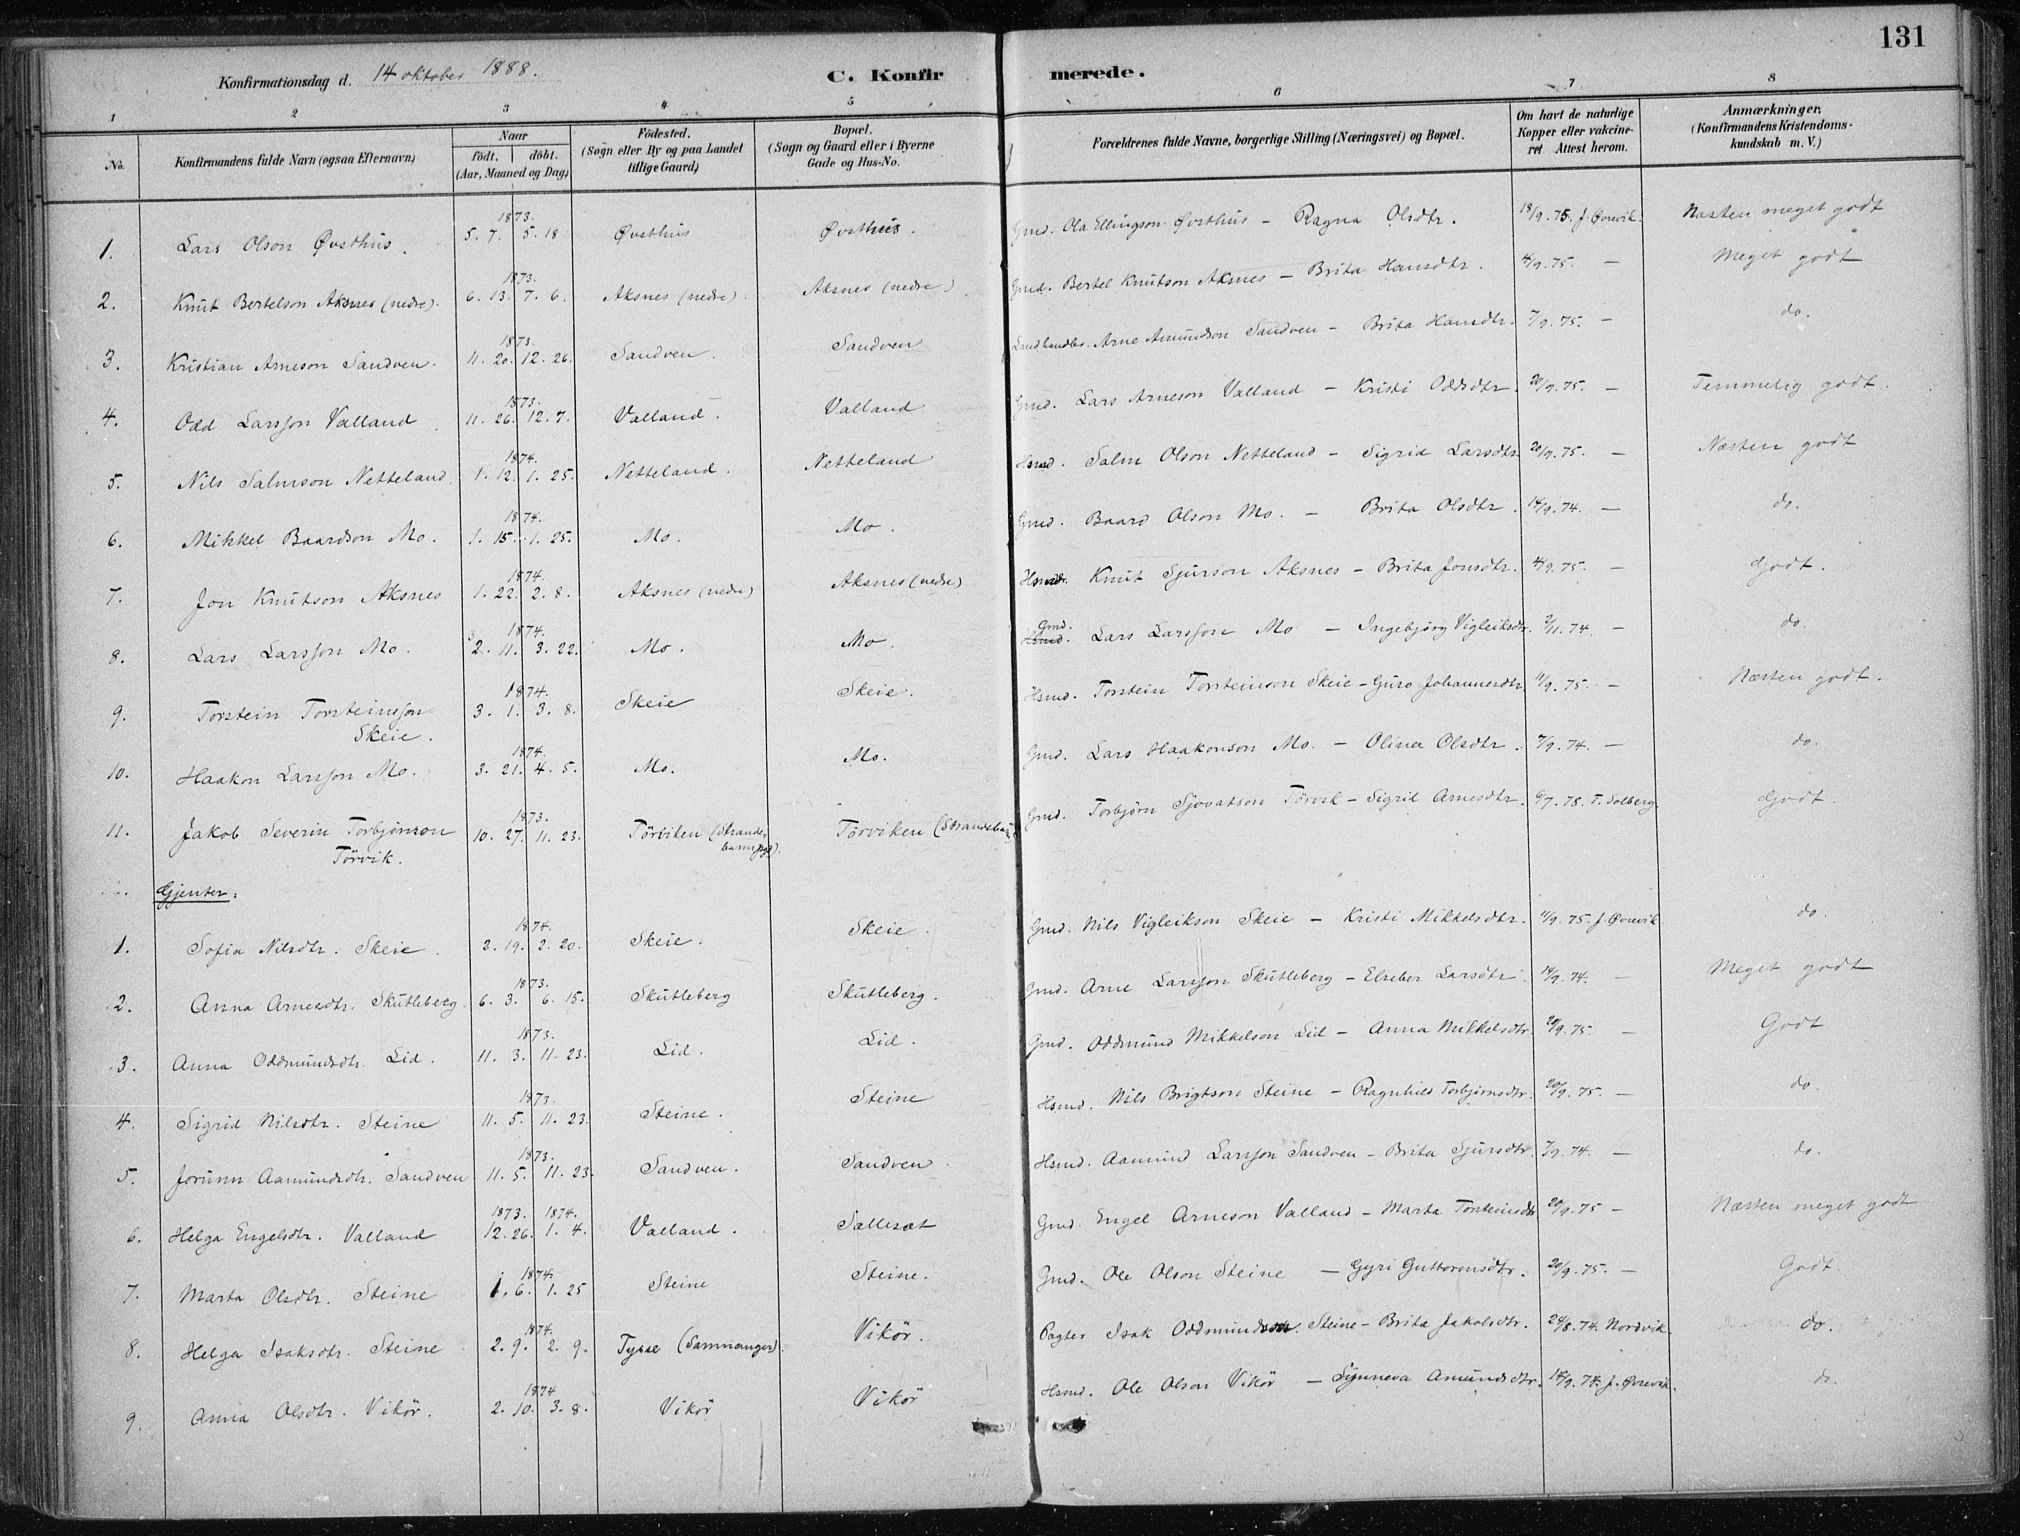 131
Konfirmationsdag d. 14 oktober 1888. C. Konfirmerede.
1 2 3 4 5 6 7 8
No. Konfirmandens fulde Navn (ogsaa Efternavn) Naar født. døbt. (Aar, Maaned og Dag) Fødested. (Sogn eller By og paa Landet tillige Gaard) Bopæl. (Sogn og Gaard eller i Byerne Gade og Hus-No. Forældrenes fulde Navne, borgerlige Stilling (Næringsvei) og Bopæl. Om havt de naturlige Kopper eller vakcineret. Attest herom. Anmærkninger. (Konfirmandens Kristendomskundskab m. V.)
1. Lars Olson Øvsthus. 1873. 5. 7. 5. 18 Øvsthus Øvsthus. Gmd. Ola Ellingson Øvsthus – Ragna Olsdtr. 18/9. 75. J. Øvrevik. Næsten meget godt
2. Knut Bertelson Aksnes (nedre). 1873. 6. 13. 7. 6. Aksnes (nedre). Aksnes (nedre) Gmd. Bertel Knutson Aksnes – Brita Hansdtr. 4/9. 75. – Meget godt
3. Kristian Arneson Sandven. 1873. 11. 20. 12. 26. Sandven. Sandven Landhandler. Arne Amundson Sandven – Brita Hansdtr. 7/9. 75. – do.
4. Odd Larsson Valland. 1873. 11. 26. 12. 7. Valland. Valland Gmd. Lars Arneson Valland – Kristi Oddsdtr. 20/9. 75. – Temmelig godt.
5. Nils Salmson Netteland. 1874. 1. 12. 1. 25. Netteland. Netteland Hsmd. Salm Olson Netteland – Sigrid Larsdtr. 20/9. 75. – Næsten godt
6. Mikkel Baardson Mo. 1874. 1. 15. 1. 25. Mo. Mo. Gmd. Baard Olson Mo. – Brita Olsdtr. 14/9. 74. – do.
7. Jon Knutson Aksnes 1874. 1. 22. 2. 8. Aksnes (nedre) Aksnes (nedre) Hsmd. Knut Sjurson Aksnes – Brita Jonsdtr. 4/9. 75. – Godt.
8. Lars Larsson Mo. 1874. 2. 11. 3. 22. Mo. Mo. Gmd. Lars Larsson Mo – Ingebjørg Vigleiksdtr. 2/11. 74. – do.
9. Torstein Torsteinsson Skeie. 1874. 3. 1. 3. 8. Skeie Skeie. Hsmd. Torstein Torsteinson Skeie – Guro Johannesdtr. 11/9. 75. – Næsten godt.
10. Haakon Larsson Mo. 1874. 3. 21. 4. 5. Mo. Mo. Gmd. Lars Haakonson Mo. – Olina Olsdtr. 7/9. 74. – do.
11. Jakob Severin Torbjönson Törvik. 1873. 10. 27. 11. 23. Törviken (Strandebarms pgd). Törviken (Strandeb. Gmd. Torbjørn Sjovatson Törvik – Sigrid Arnesdtr. 6/7. 78. T. Solberg Godt.
Gjenter:
1. Sofia Nilsdtr. Skeie. 1874. 2. 19. 2. 20. Skeie. Skeie. Gmd. Nils Vigleikson Skeie – Kristi Mikkelsdtr. 11/9. 75. J. Øvrevik. do.
2. Anna Arnesdtr. Skutleberg. 1873. 6. 3. 6. 15. Skutleberg Skutleberg. Gmd. Arne Larsson Skutleberg – Elseber Larsdtr. 14/9. 74. – Meget godt
3. Anna Oddmundsdtr. Lid. 1873. 11. 3. 11. 23. Lid. Lid. Gmd. Oddmund Mikkelson Lid – Anna Mikkelsdtr. 20/9. 75. – Godt
4. Sigrid Nilsdtr. Steine 1873. 11. 5. 11. 23. Steine. Steine Hsmd. Nils Brigtson Steine – Ragnhild Torbjørnsdtr. 20/9. 75. – do.
5. Jorunn Aamundsdtr. Sandven 1873. 11. 5. 11. 23. Sandven. Sandven. Hsmd. Aamund Larsson Sandven – Brita Sjursdtr. 7/9. 74. – do.
6. Helga Engelsdtr. Valland 1873. 1874. 12. 26. 1. 4. Valland. Sallesæt Gmd. Engel Arneson Valland – Marta Torsteinsdtr 20/9. 75 – Næsten meget godt
7. Marta Olsdtr. Steine 1874. 1. 6. 1. 25 Steine Steine. Gmd. Ole Olson Steine – Gyri Guttormsdtr. 20/9. 75. – Godt.
8. Helga Isaksdtr. Steine 1874. 2. 9. 2. 9. Tysse (Samnanger). Vikör. Pagter Isak Oddmundson. Steine – Brita Jakobsdtr. 24/8. 74. Nordvik. do.
9. Anna Olsdtr. Vikör. 1874 2. 10. 3. 8. Vikör Vikör Hsmd. Ole Olson Vikör – Synneva Amundsdtr. 14/9. 74. J. Øvrevik. do.